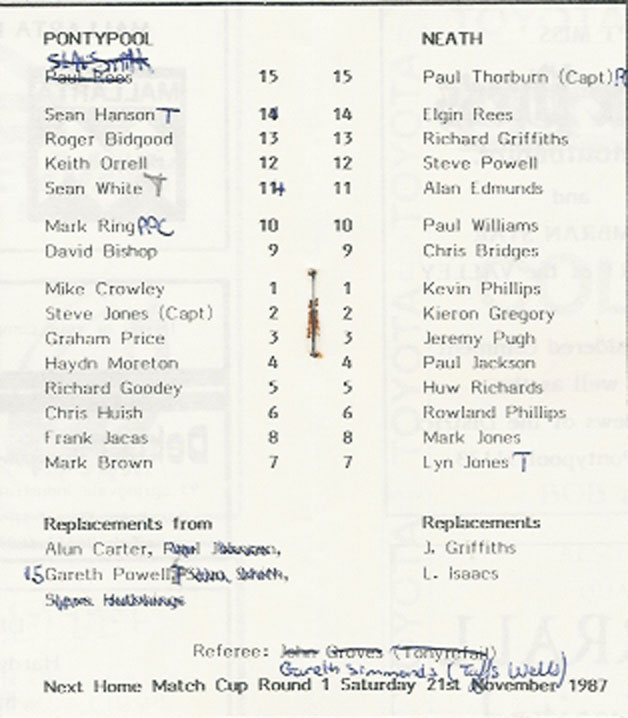 PONTYPOOL NEATH
Paul Rees 15 15 Paul Thorburn (Capt) P
Sean Hanson T 14 14 Elgin Rees
Roger Bidgood 13 13 Richard Griffiths
Keith Orrell 12 12 Steve Powell
Sean White T 11 11 Alan Edmunds
Mark Ring PPC 10 10 Paul Williams
David Bishop 9 9 Chris Bridges
Mike Crowley 1 1 Kevin Phillips
Steve Jones (Capt) 2 2 Kieron Gregory
Graham Price 3 3 Jeremy Pugh
Haydn Moreton 4 4 Paul Jackson
Richard Goodey 5 5 Huw Richards
Chris Huish 6 6 Rowland Phillips
Frank Jacas 8 8 Mark Jones
Mark Brown 7 7 Lyn Jones T
Replacements from Replacements
Alun Carter, J. Griffiths
15 Gareth Powell, L. Isaacs
Referee: John Groves (Tonyrefail)
Gareth Simmonds (Taffs Well)
Next Home Match Cup Round 1 Saturday 21st November 1987